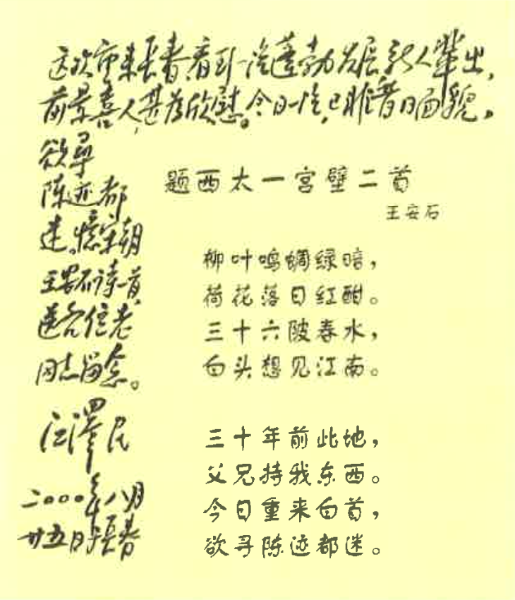 这次重来长春,看到一汽蓬勃发展,新人辈出,
前景喜人,甚为欣慰。今日一汽,已非昔日面貌。
欲寻
陈迹都
迷。忆宋朝
王安石诗一首,
送各位老
同志留念。
江泽民
二000年八月
廿五日长春
题西太一宫壁二首
王安石
柳叶鸣蜩绿暗,
荷花落日红酣。
三十六陂春水,
白头想见江南。
三十年前此地,
父兄持我东西。
今日重来白首,
欲寻陈迹都迷。